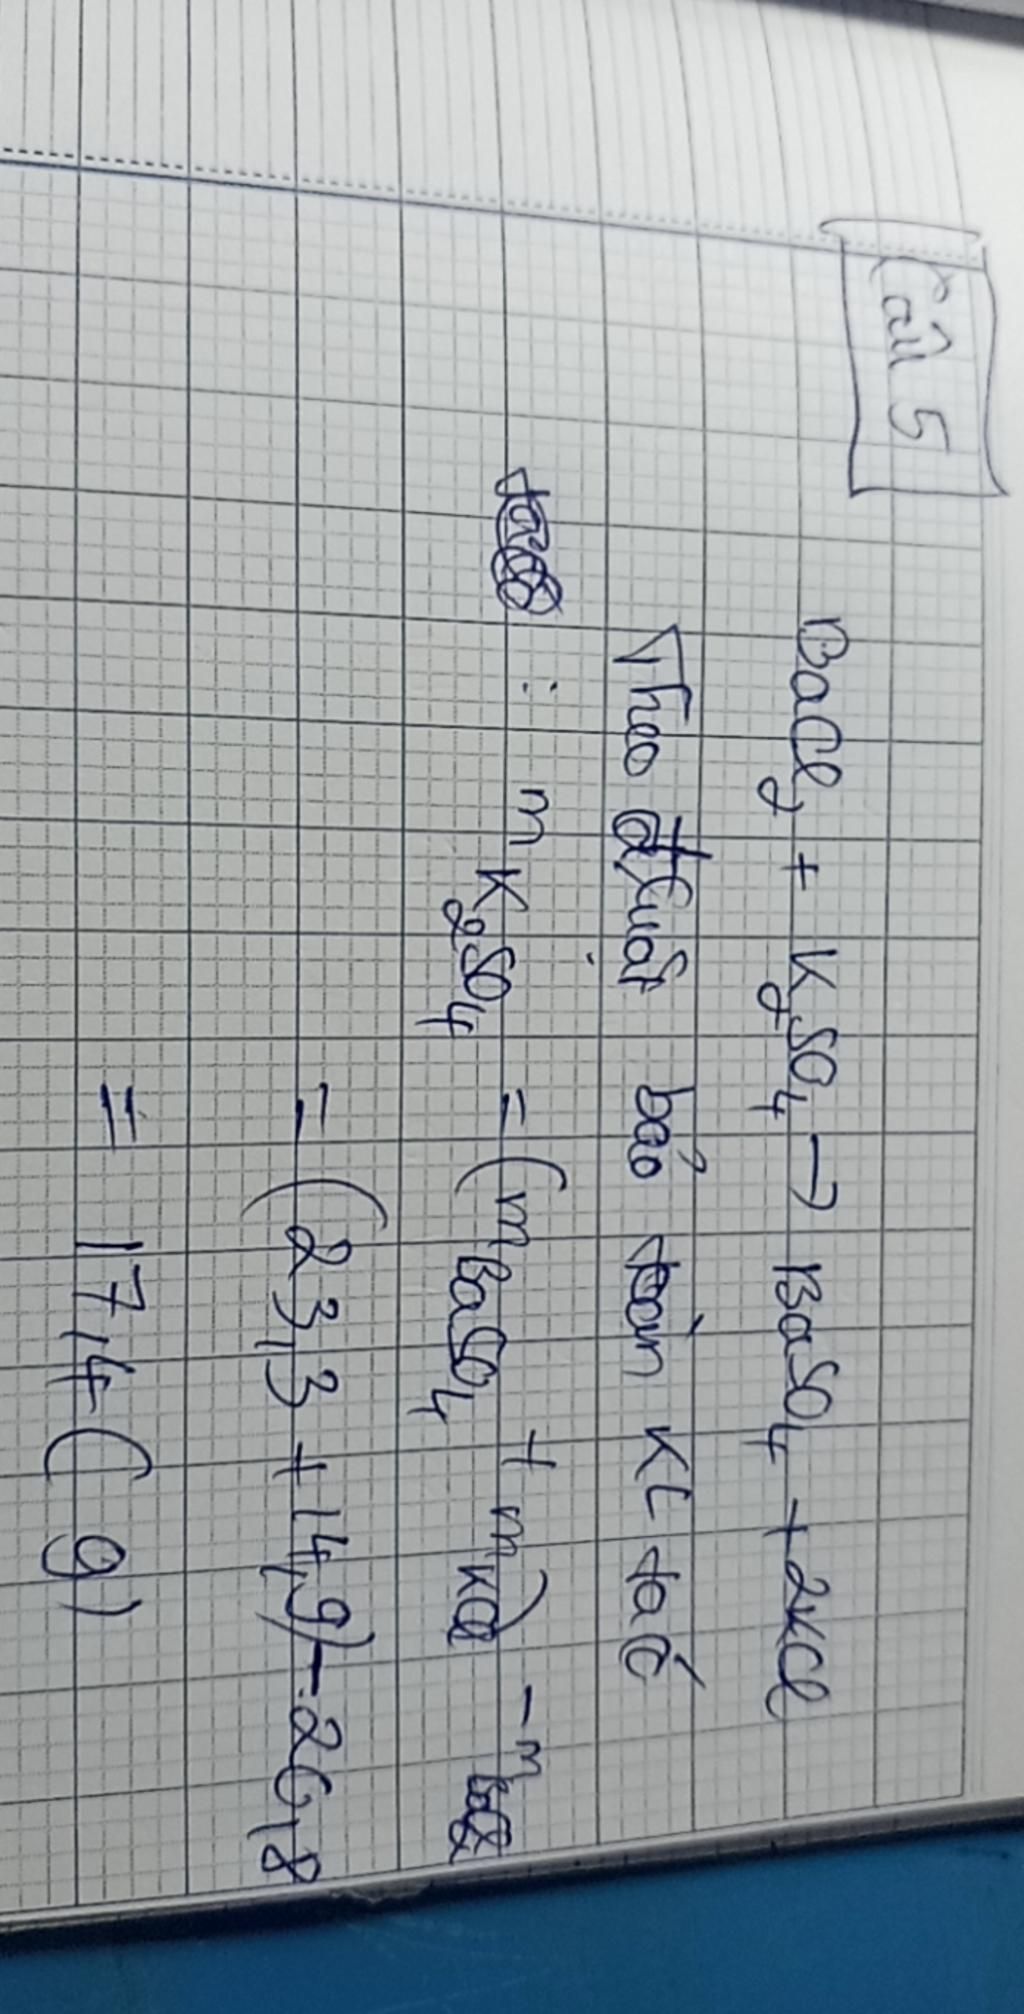 Câu 5
BaCl₂ + K₂SO₄ → BaSO₄ + 2KCl
Theo đ/luật bảo toàn KL ta có
: m K₂SO₄ = (m BaSO₄ + m KCl) - m BaCl₂
= (23,3 + 14,9) - 20,8
= 17,4 (g)